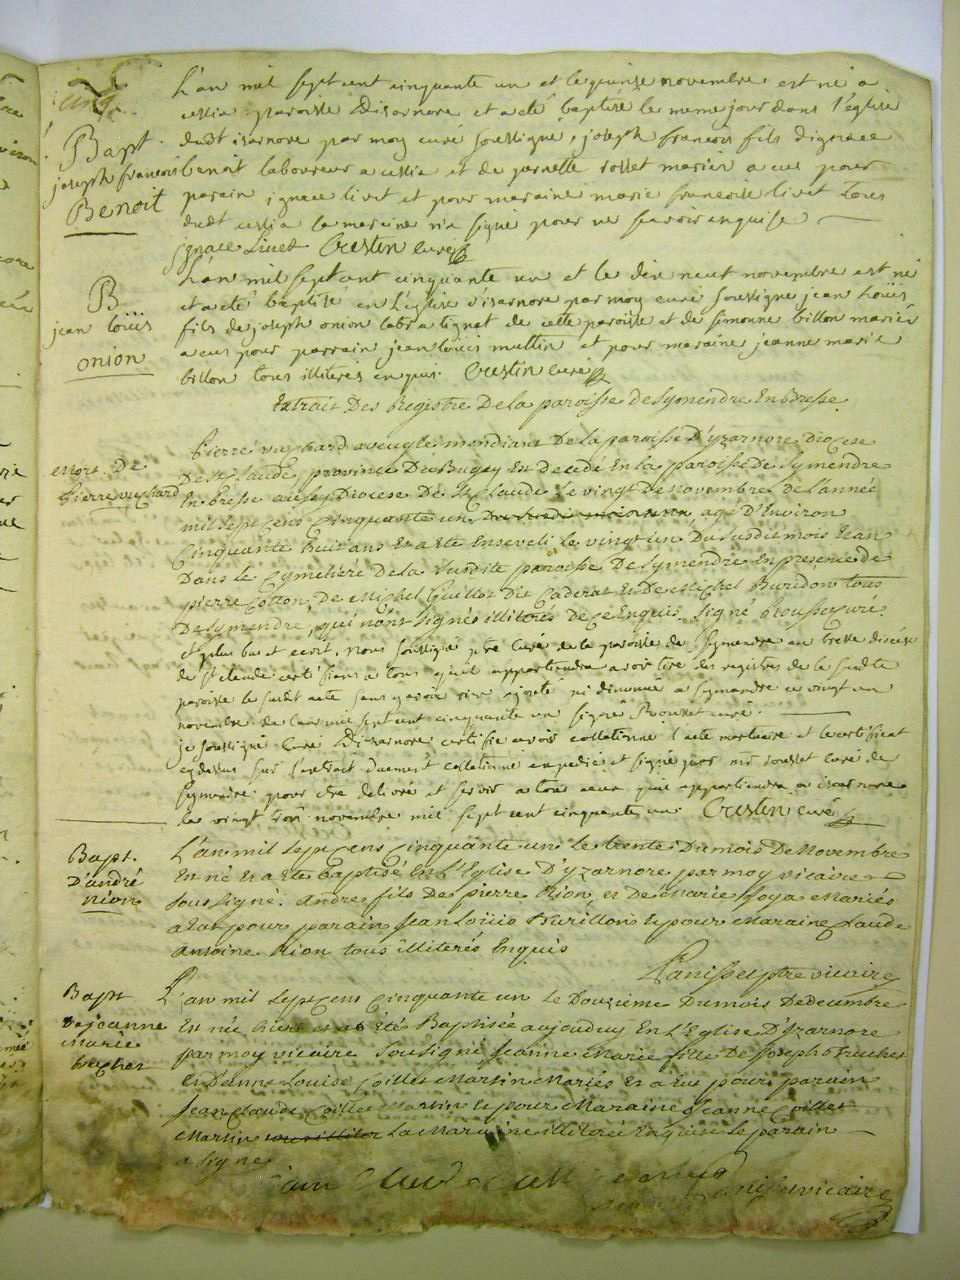 L'an mil sept cent cinquante un et le quinze novembre est né a
cessia paroisse d'isarnore et a eté baptisé le meme jour dans l'eglise
dudt isarnore par moy curé soussigné, joseph francois fils d'ignace
Bapt.
joseph francois
Benoit
benoit laboureur a cessia et de pernette rosset mariés a eus pour
parain ignace livet et pour maraine marie francoise livet tous
dudt cessia la maraine n'a signé pour ne savoir enquise
Ignace Livet Crestin curé
B
jean loüis
onion
L'an mil sept cent cinquante un et le dix neuf novembre est né
et a eté baptisé en l'eglise d'isarnore par moy curé soussigné jean loüis
fils de joseph onion de cette paroisse et de simonne billon mariés
a eus pour parrain jean loüis mullin et pour maraine jeanne marie
billon tous illiterés enquis. Crestin curé
Extrait Des Registre De la paroisse de Symendre En Bresse
mort De
pierre vuchard
pierre vuchard aveugle mendiant De la paroisse D'yzarnore Diocese
De St Claude province Du Bugey Est Decedé En la paroisse De Symendre
En Bresse Diocese De St Claude Le vingt De novembre De l'année
mil sept cens Cinquante un agé D'Environ
Cinquante huit ans Et a ete Enseveli Le vingt un Du susdit mois Et an
Dans le Cymetiere De la susdite paroisse De Symendre En presence de
pierre Cotton, De Michel Guillot Dit Caderat Et De Michel Buridon tous
De Symendre, qui n'ont signés illiterés De ce Enquis. Signé Rousset curé
et plus bas et ecrit, nous soussigné ptre curé de la paroisse de Symendre en bresse diocese
de St claude certifions a tous qu'il appartiendra avoir tiré des registres de la susdte
paroisse le susdit acte sans y avoir rien ajouté ni diminué a symandre ce vingt un
novembre de l'an mil sept cent cinquante un signé Rousset curé.
je soussigné curé D'izarnore certifie avoir collationné l'acte mortuaire et le certificat
cydessus sur l'extrait duement collationné expedié et signé par mr rousset curé de
symandre pour etre delivré et servir a tous ceux qu'il appartiendra a isarnore
le vingt novembre mil sept cent cinquante un. Crestin curé
Bapt.
D'andré
Nion
L'an mil sept cens Cinquante un le trente Du mois De Novembre
Est né Et a ete baptisé En L'Eglise D'yzarnore par moy vicaire
sousigné. André fils De pierre Nion et De Marie Joya Mariés
a Eut pour parain Jean Loüis Burillon Et pour Maraine Claude
Antoine Nion tous illiterés Enquis
Lanisset ptre vicaire
Bapt
De jeanne
Marie
L'an mil sept cens Cinquante un le Douzieme Du mois De decembre
Est née hier et a Eté Baptisée aujourduy En L'Eglise D'Yzarnore
par moy vicaire sousigné Jeanne Marie fille De Joseph
et D'anne Louise Coillet Martin Mariés Et a Eus pour parain
Jean Claude Coillet Martin Et pour Maraine Jeanne Coillet
Martin La Maraine illiterée Enquise Le parain
a signé
vicaire